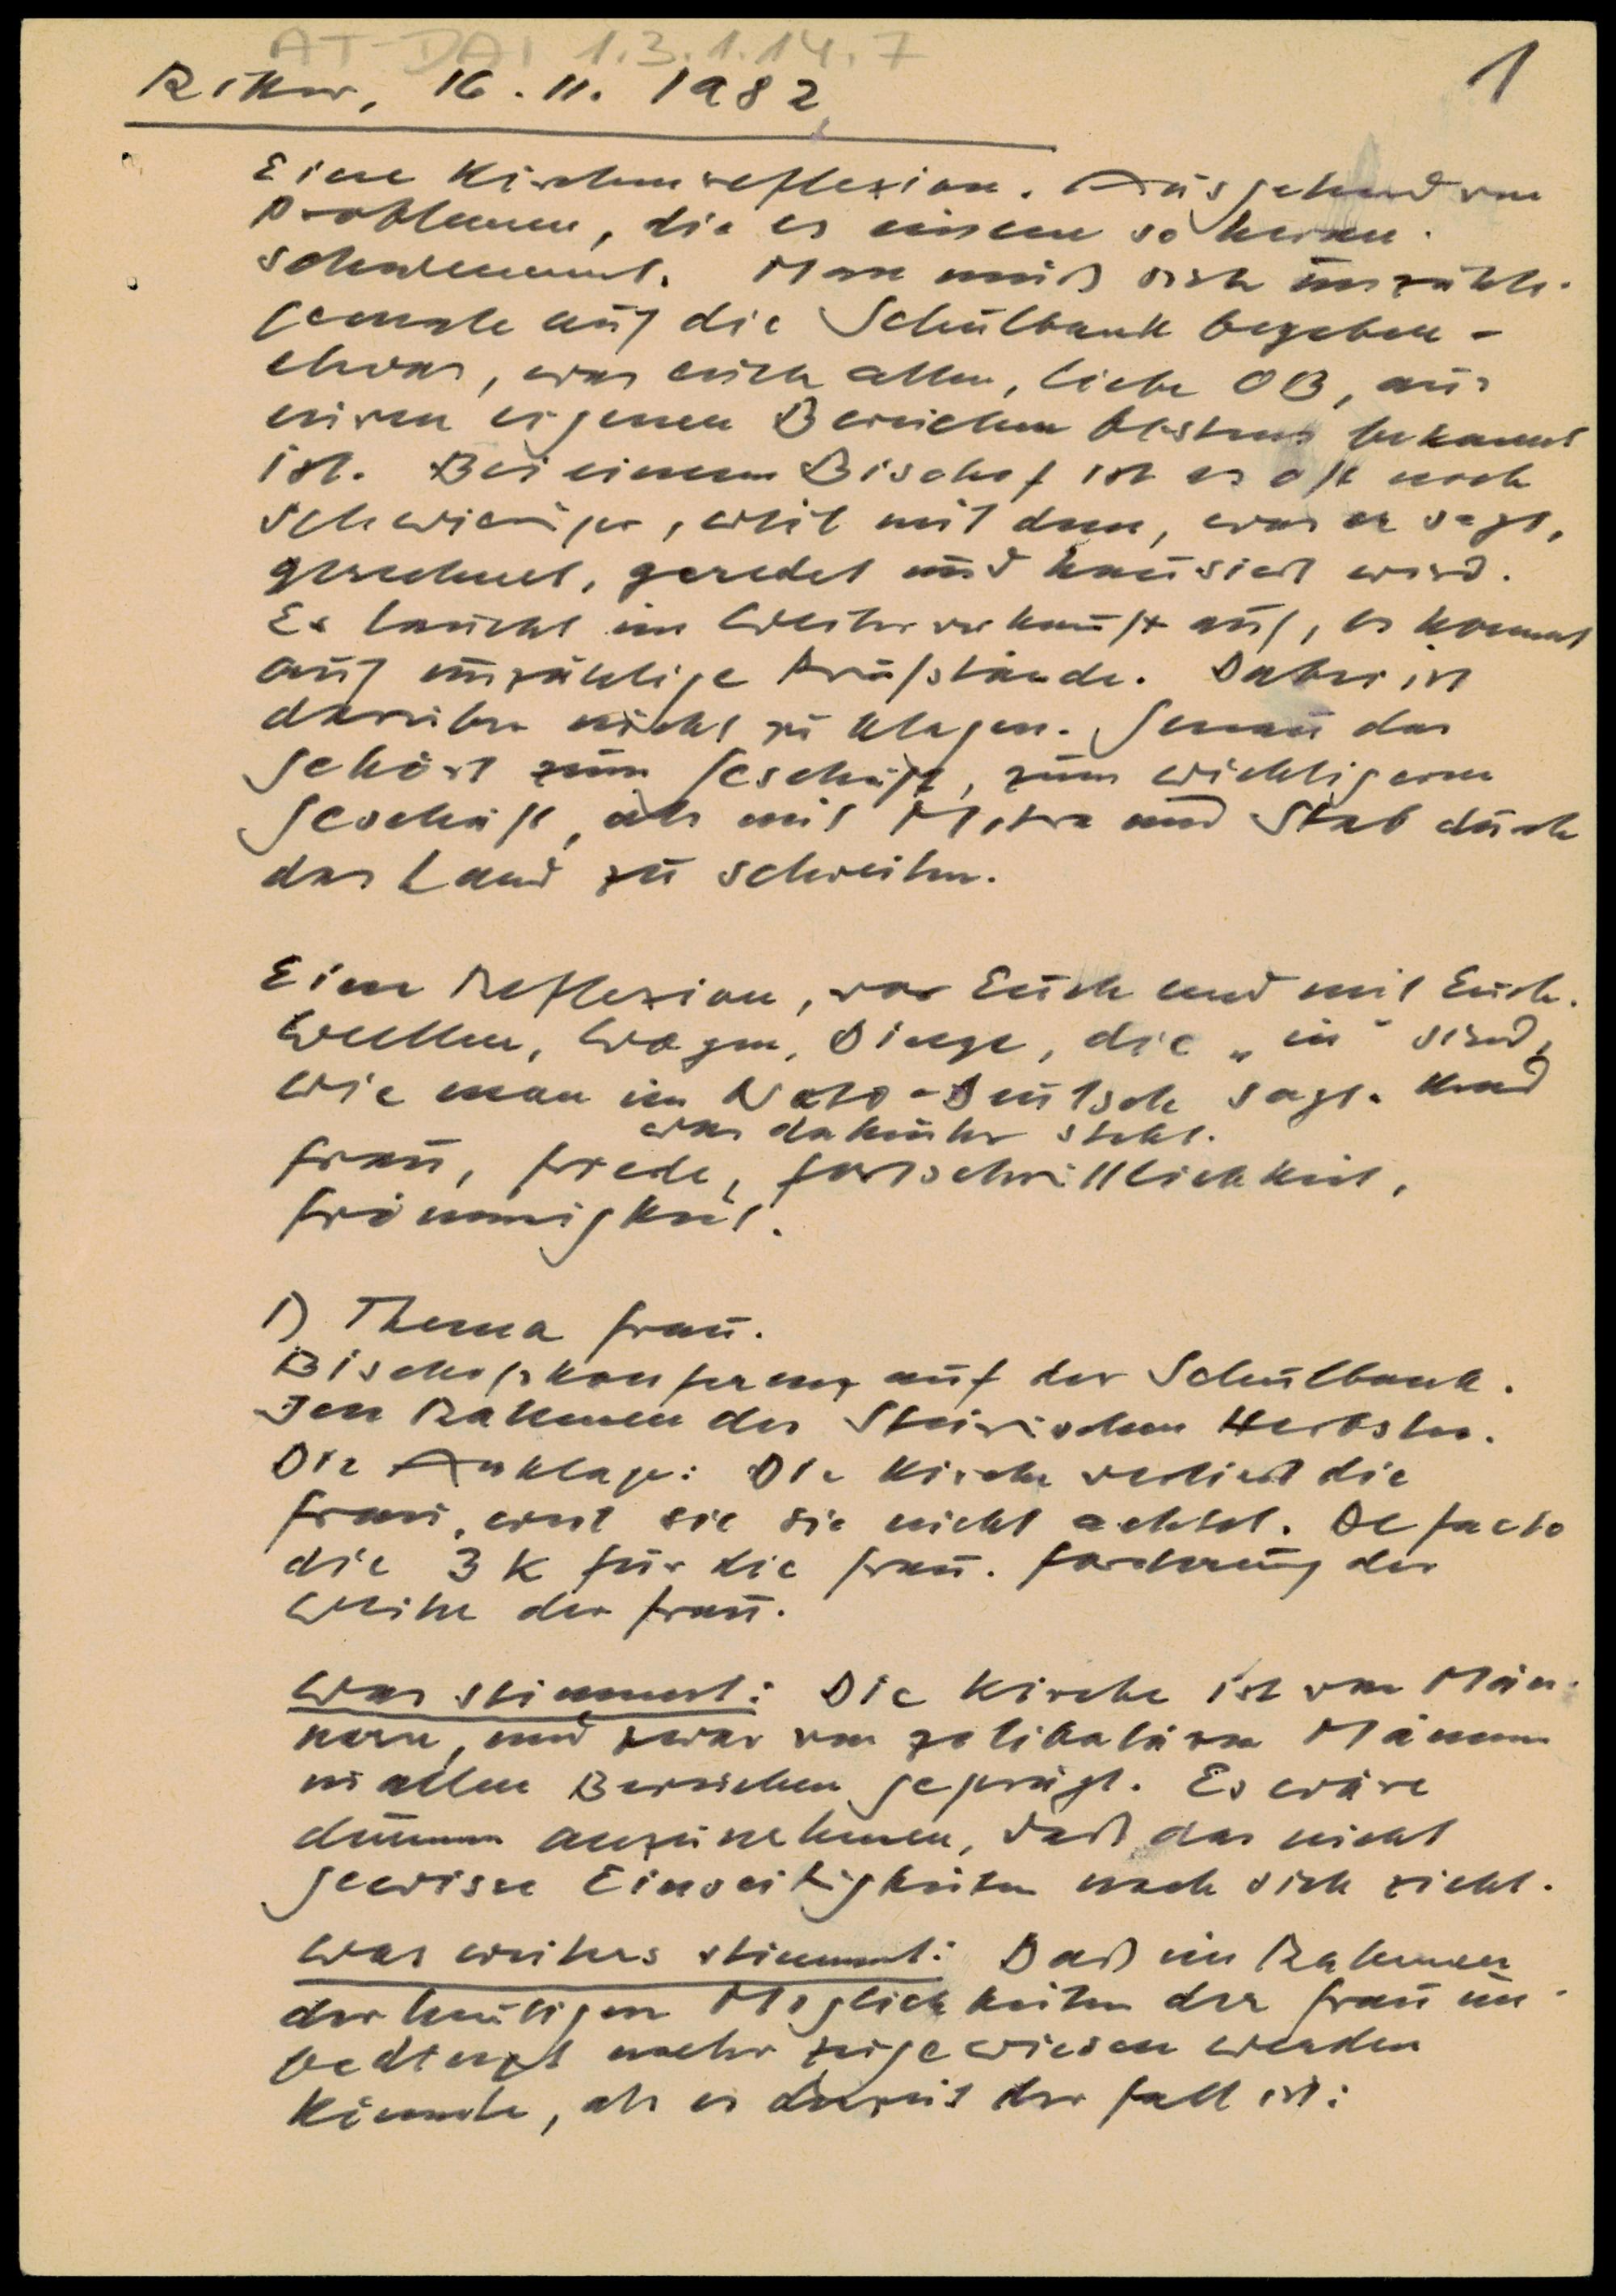 AT-DAI 1.3.1.14.7
1
Ritter, 16.11. 1982
Eine Kirchenreflexion. Ausgehend von
Problemen, die es einem so heran-
schwemmt. Man muß sich unzähli-
gemale auf die Schulbank begeben -
etwas, was euch allen, liebe OB, aus
euren eigenen Bereichen bestens bekannt
ist. Bei einem Bischof ist es oft noch
schwieriger, weil mit dem, was er sagt,
gerechnet, geredet und hausiert wird.
Es taucht im Weiterverkauf auf, es kommt
auf unzählige Prüfstände. Dabei ist
darüber nicht zu klagen. Genau das
gehört zum Geschäft, zum wichtigeren
Geschäft, als mit Mitra und Stab durch
das Land zu schreiten.
Eine Reflexion, vor Euch und mit Euch.
Wellen, Wogen, Dinge, die „in" sind,
wie man im Nato-Deutsch sagt. Und
was dahinter steht.
Frau, Friede, Fortschrittlichkeit,
Frömmigkeit.
1) Thema Frau.
Bischofskonferenz auf der Schulbank.
Im Rahmen des Steirischen Herbstes.
Die Anklage: Die Kirche verliert die
Frau, weil sie sie nicht achtet. De facto
die 3 K für die Frau. Forderung der
Weihe der Frau.
Was stimmt: Die Kirche ist von Män-
nern, und zwar von zölibatären Männern
in allen Bereichen geprägt. Es wäre
dumm anzunehmen, daß das nicht
gewisse Einseitigkeiten nach sich zieht.
Was weiters stimmt: Daß im Rahmen
der heutigen Möglichkeiten der Frau un-
bedingt mehr zugewiesen werden
könnte, als es derzeit der Fall ist: